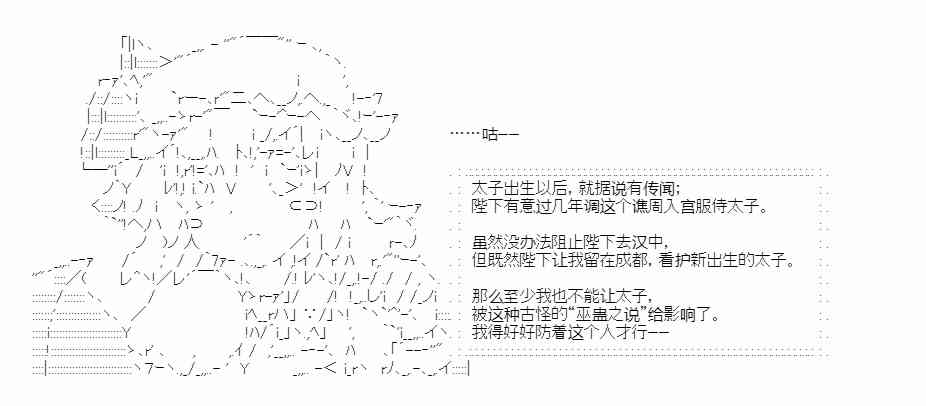 ……咕——
太子出生以后，就据说有传闻；
陛下有意过几年调这个谯周入宫服侍太子。
虽然没办法阻止陛下去汉中，
但既然陛下让我留在成都，看护新出生的太子。
那么至少我也不能让太子，
被这种古怪的“巫蛊之说”给影响了。
我得好好防着这个人才行——